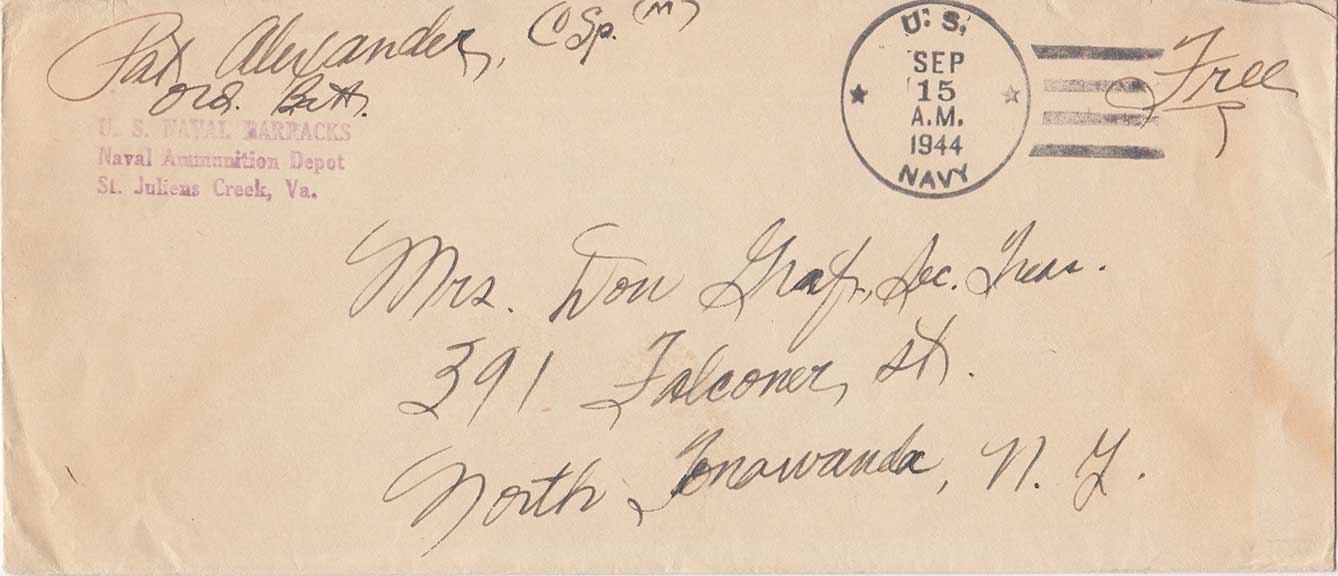 Pat Alexander, C Sp. (M)
Ord. Batt.
U. S. NAVAL BARRACKS
Naval Ammunition Depot
St. Juliens Creek, Va.
U. S.
SEP
15
A.M.
1944
NAVY
Free
Mrs. Don Graf, Sec. Treas.
391 Falconer, St.
North Tonawanda, N. Y.